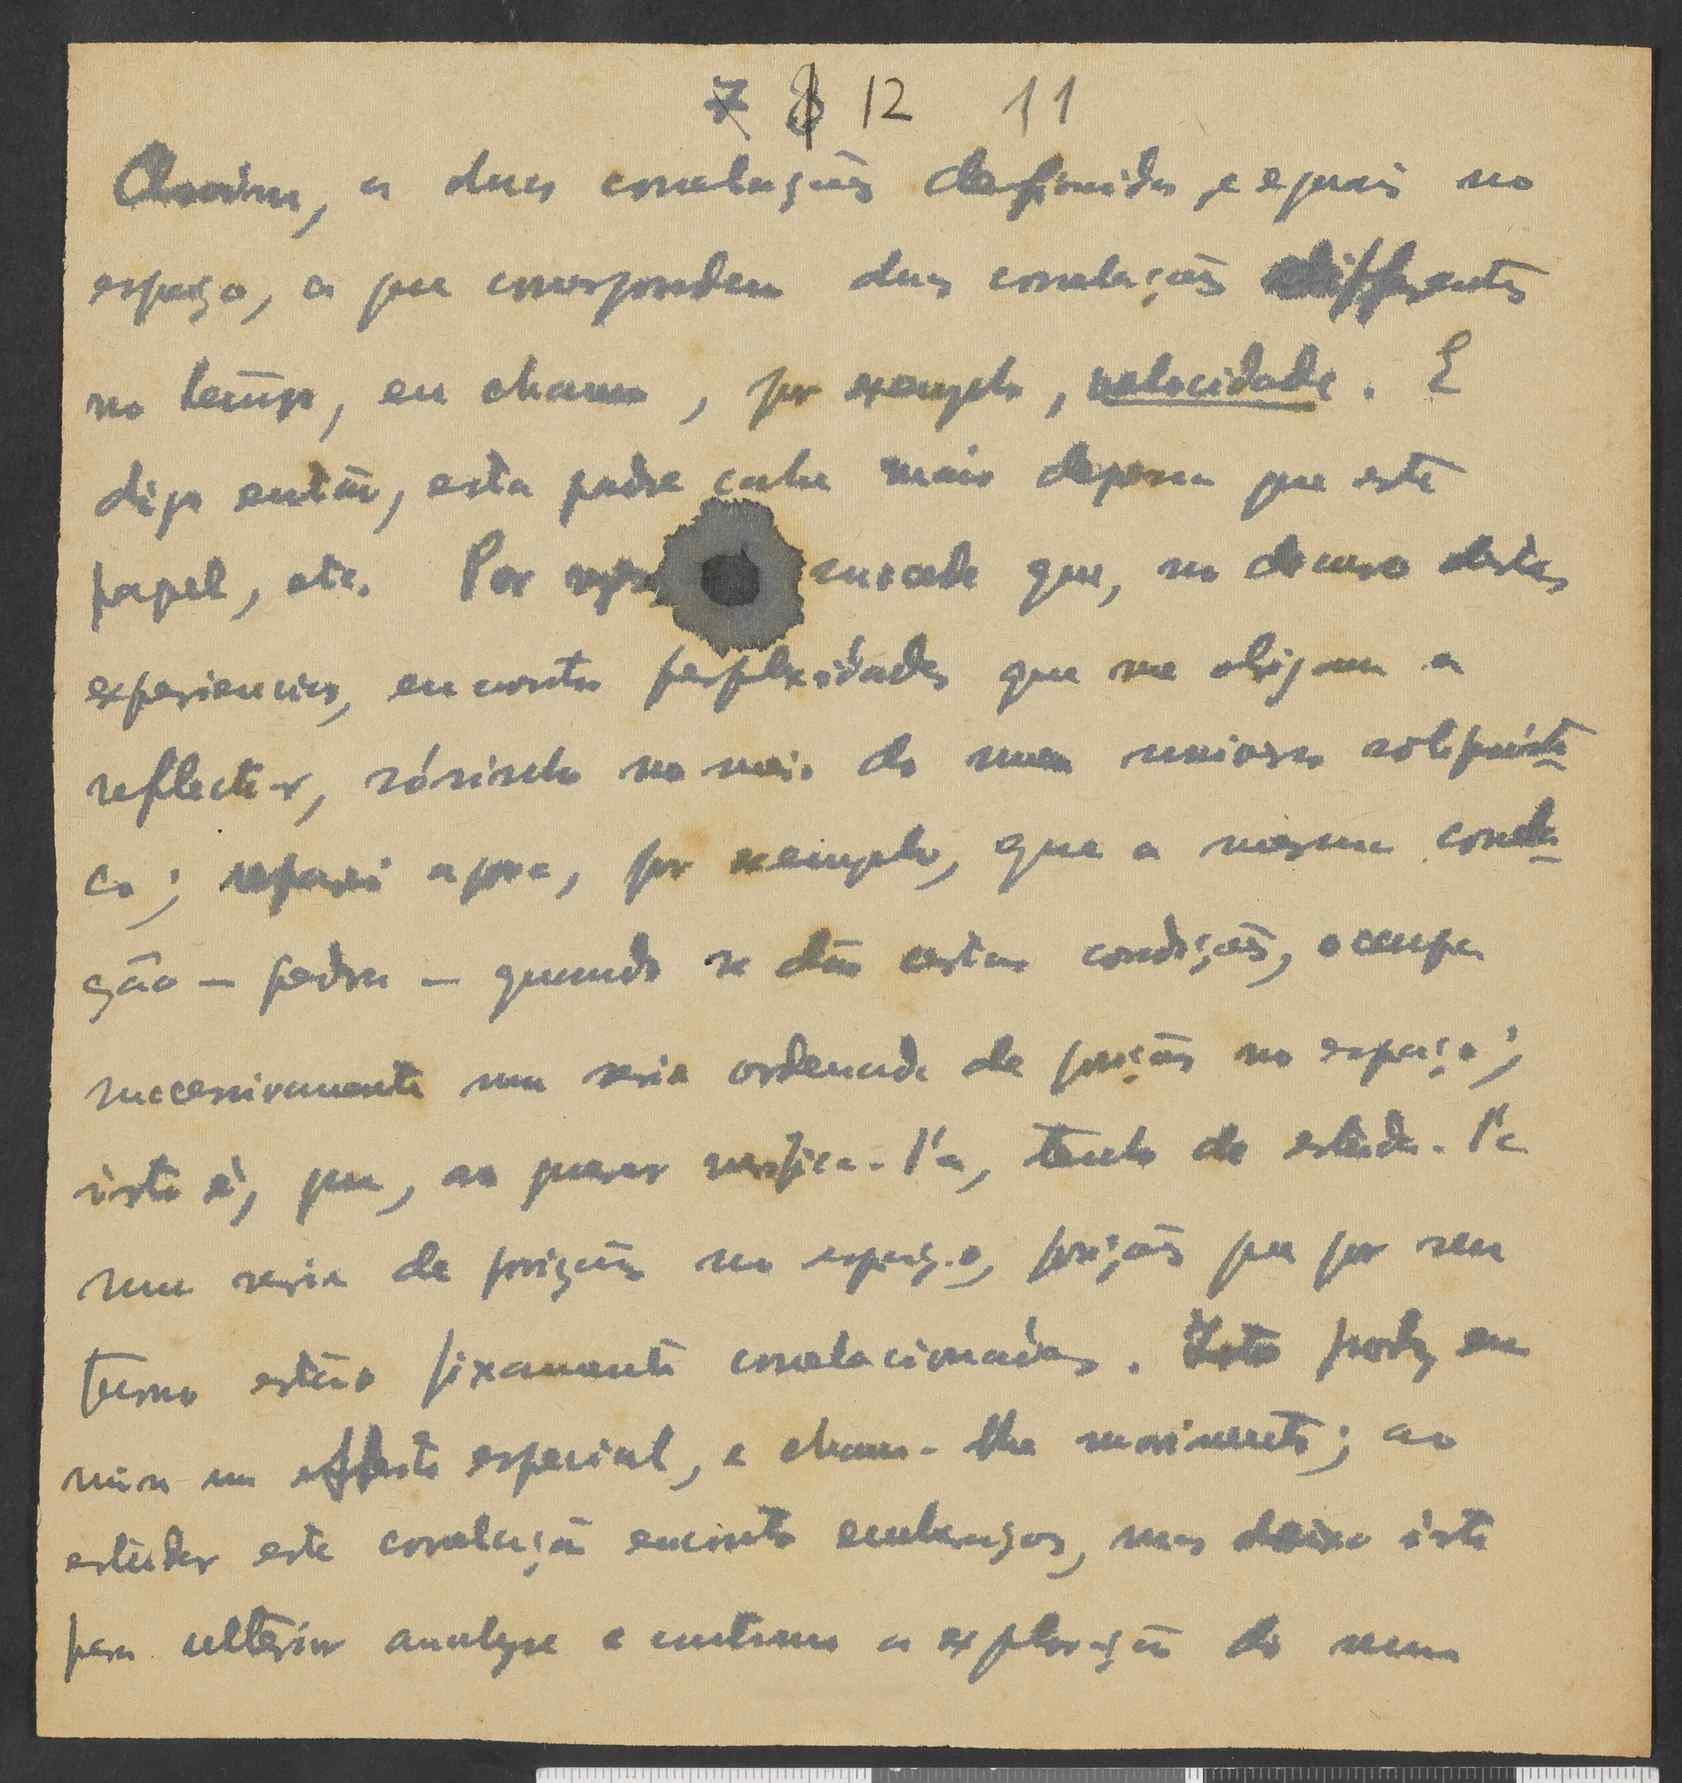 7 8 12 11
Assim, a duas correlações definidas, e eguais no
espaço, a que correspondem duas correlações differentes
no tempo, eu chamo, por exemplo, velocidade. E
digo então, esta pedra cahe mais depressa que este
papel, etc. Por succede que, no decurso destas
experiencias, encontro perplexidades que me obrigam a
reflectir, sósinho no meio do meu universo solipsisti-
co; reparei agora, por exemplo, que a mesma correla-
ção – pedra – quando se dão certas condições, occupa
successivamente uma serie ordenada de posições no espaço;
isto é, que, ao querer verifica-l'a, tenho de estuda-l'a
numa serie de posições no espaço, posições que por seu
turno estão fixamente correlacionadas. Isto produz em
mim um effeito especial, e chamo-lhe movimento; ao
estudar esta correlação encontro embaraços, mas deixo isto
para ulterior analyse e continuo a exploração do meu